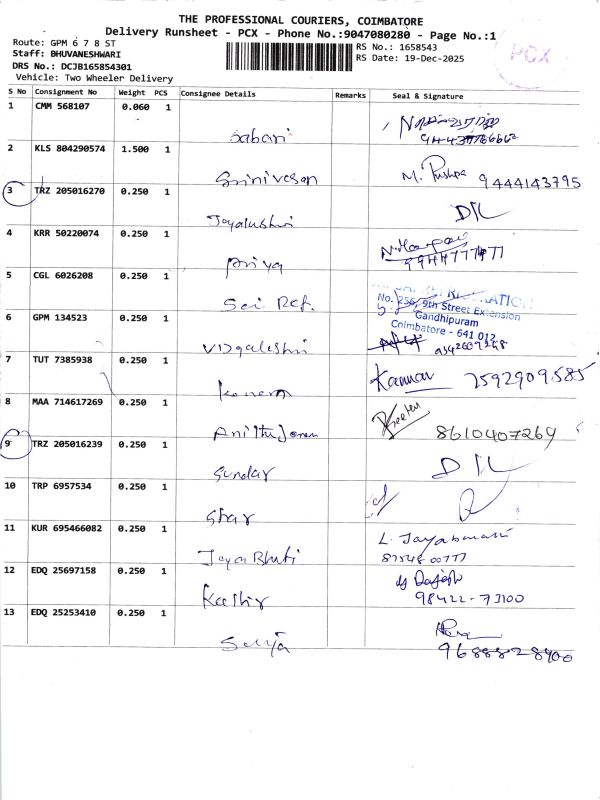 THE PROFESSIONAL COURIERS, COIMBATORE
Delivery Runsheet - PCX - Phone No.:9047080280 - Page No.:1
Route: GPM 6 7 8 ST
RS No.: 1658543
PCX
Staff: BHUVANESHWARI
RS Date: 19-Dec-2025
DRS No.: DCJB165854301
Vehicle: Two Wheeler Delivery
S No Consignment No Weight PCS Consignee Details Remarks Seal & Signature
1 CMM 568107 0.060 1 Sabari
2 KLS 804290574 1.500 1 Srinivasan M. Pushpa 9444143795
3 TRZ 205016270 0.250 1 Jayalushri D/L
4 KRR 50220074 0.250 1 Priya
5 CGL 6026208 0.250 1 Sai Ref.
No. 256, 9th Street Extension
Gandhipuram
Coimbatore - 641 012
6 GPM 134523 0.250 1
7 TUT 7385938 0.250 1 Kannan Kannan 7592909585
8 MAA 714617269 0.250 1 8610407269
9 TRZ 205016239 0.250 1 Sundar D/L
10 TRP 6957534 0.250 1 Star
11 KUR 695466082 0.250 1 L. Jayabharathi
12 EDQ 25697158 0.250 1 98422-73100
13 EDQ 25253410 0.250 1 Surya